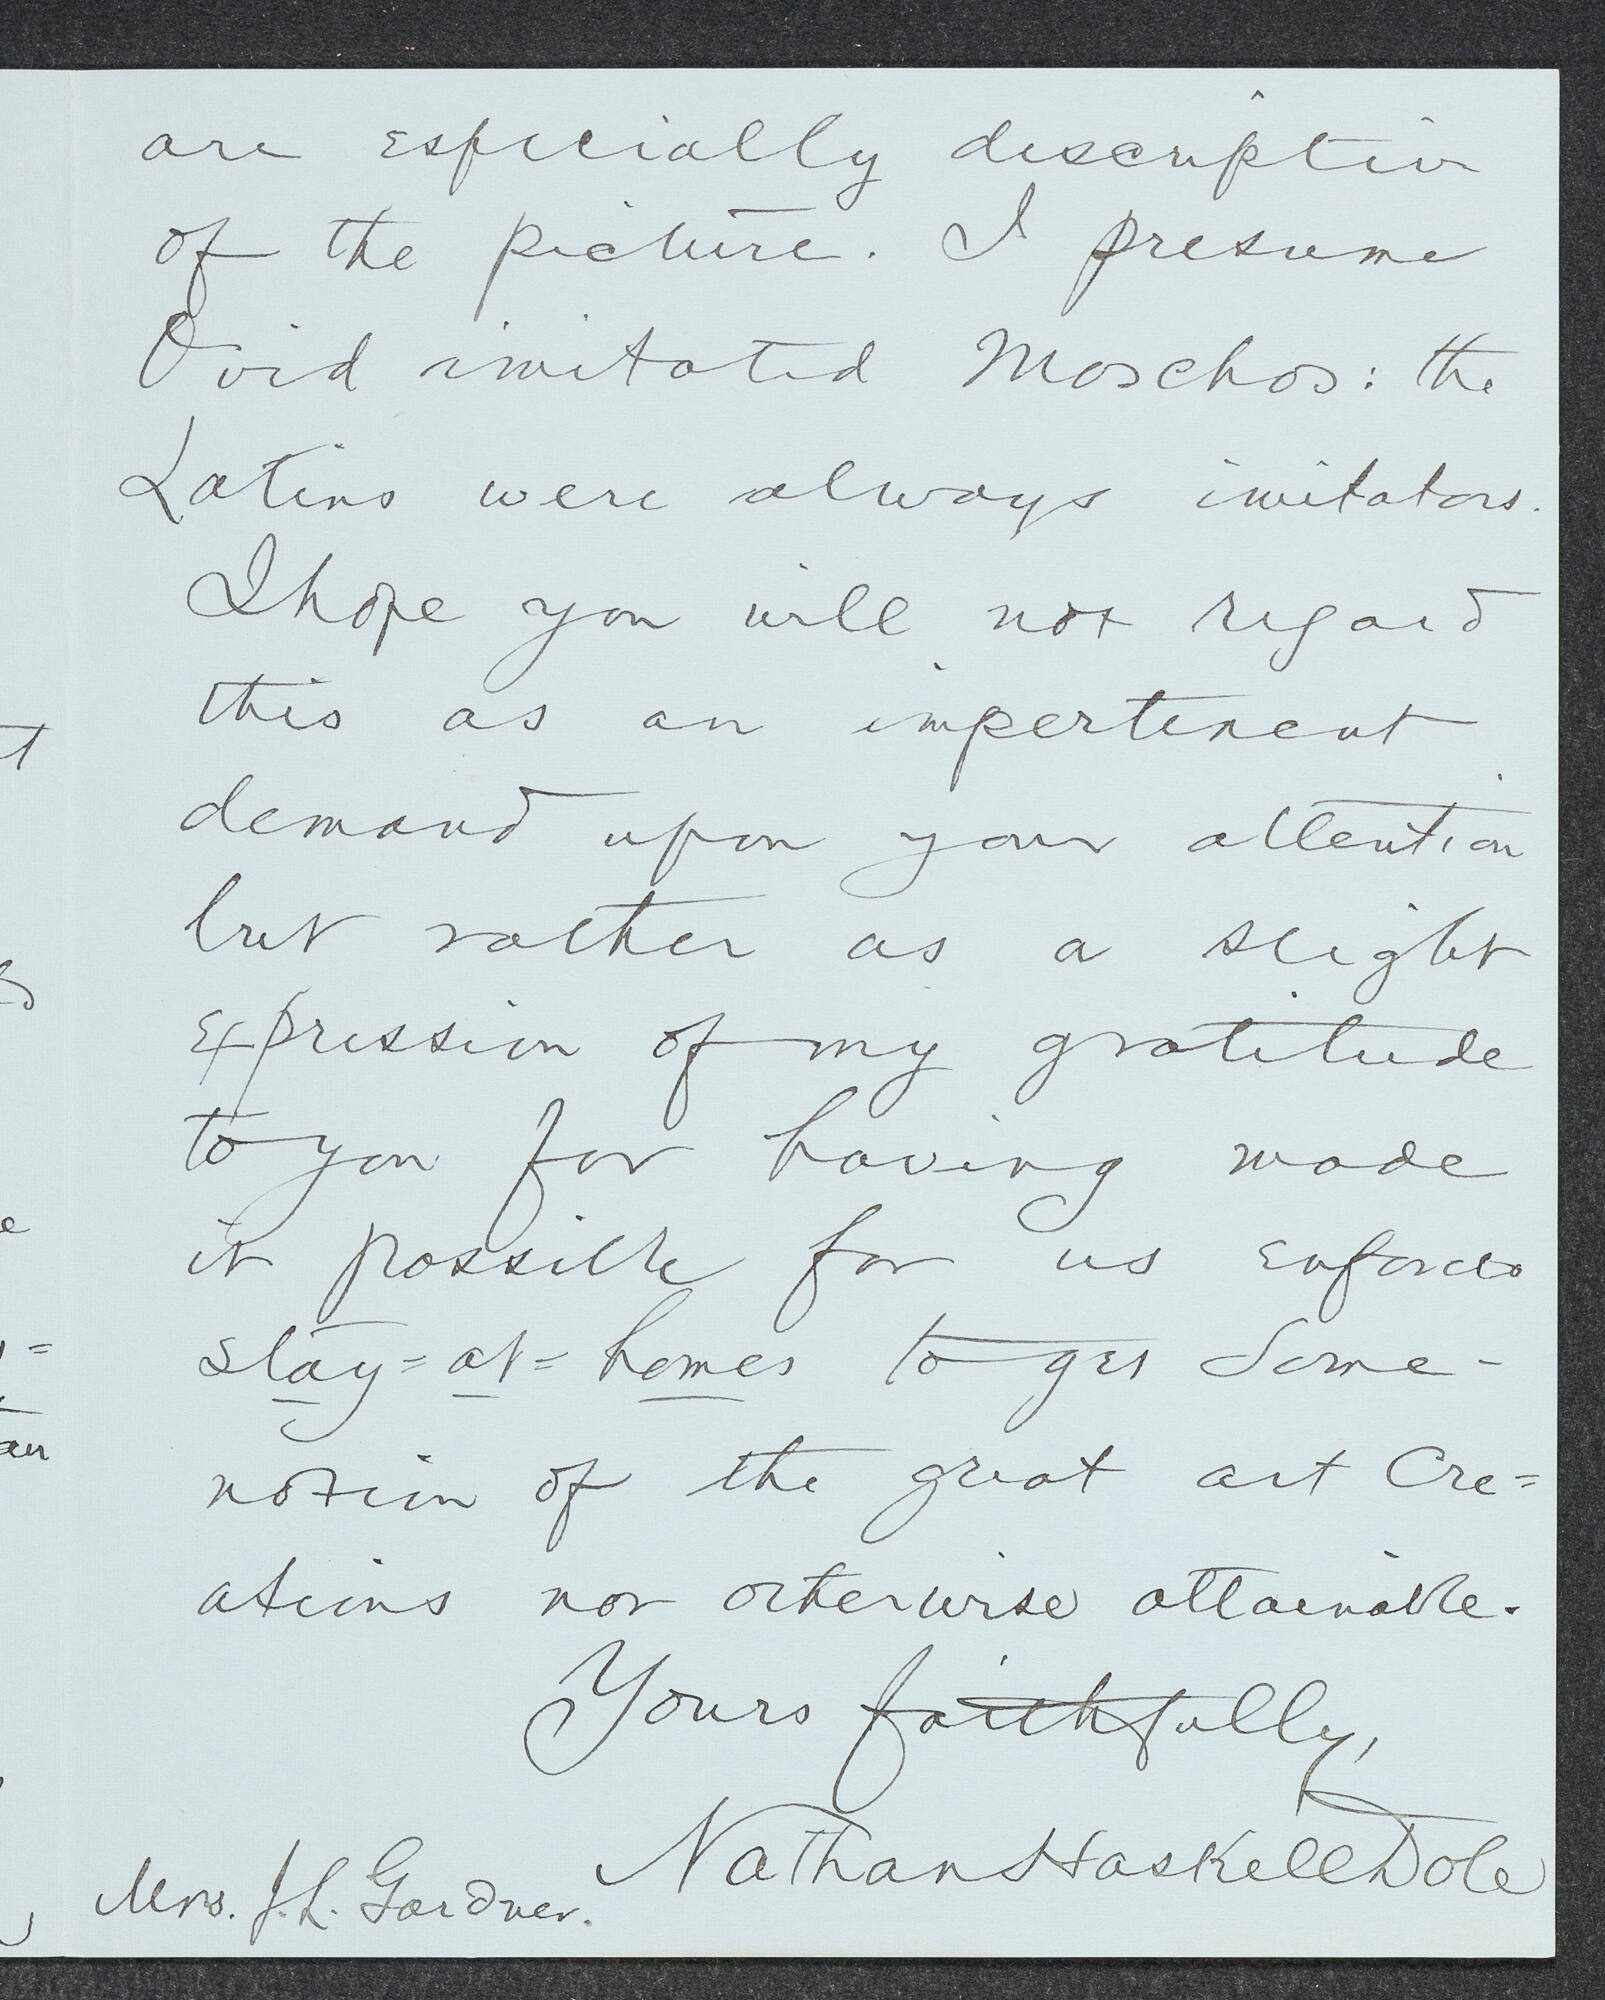 are especially descriptiv
of the picture. I presume
Ovid imitated Moschos: the
Latins were always imitators.
I hope you will not regard
this as an impertinent
demand upon your attention
but rather as a slight
expression of my gratitude
to you for having made
it possible for us enforced
stay=at=homes to get some-
notion of the great art cre=
ations not otherwise attainable.
Yours faithfully,
Nathan Haskell Dole
Mrs. J. L. Gardner.